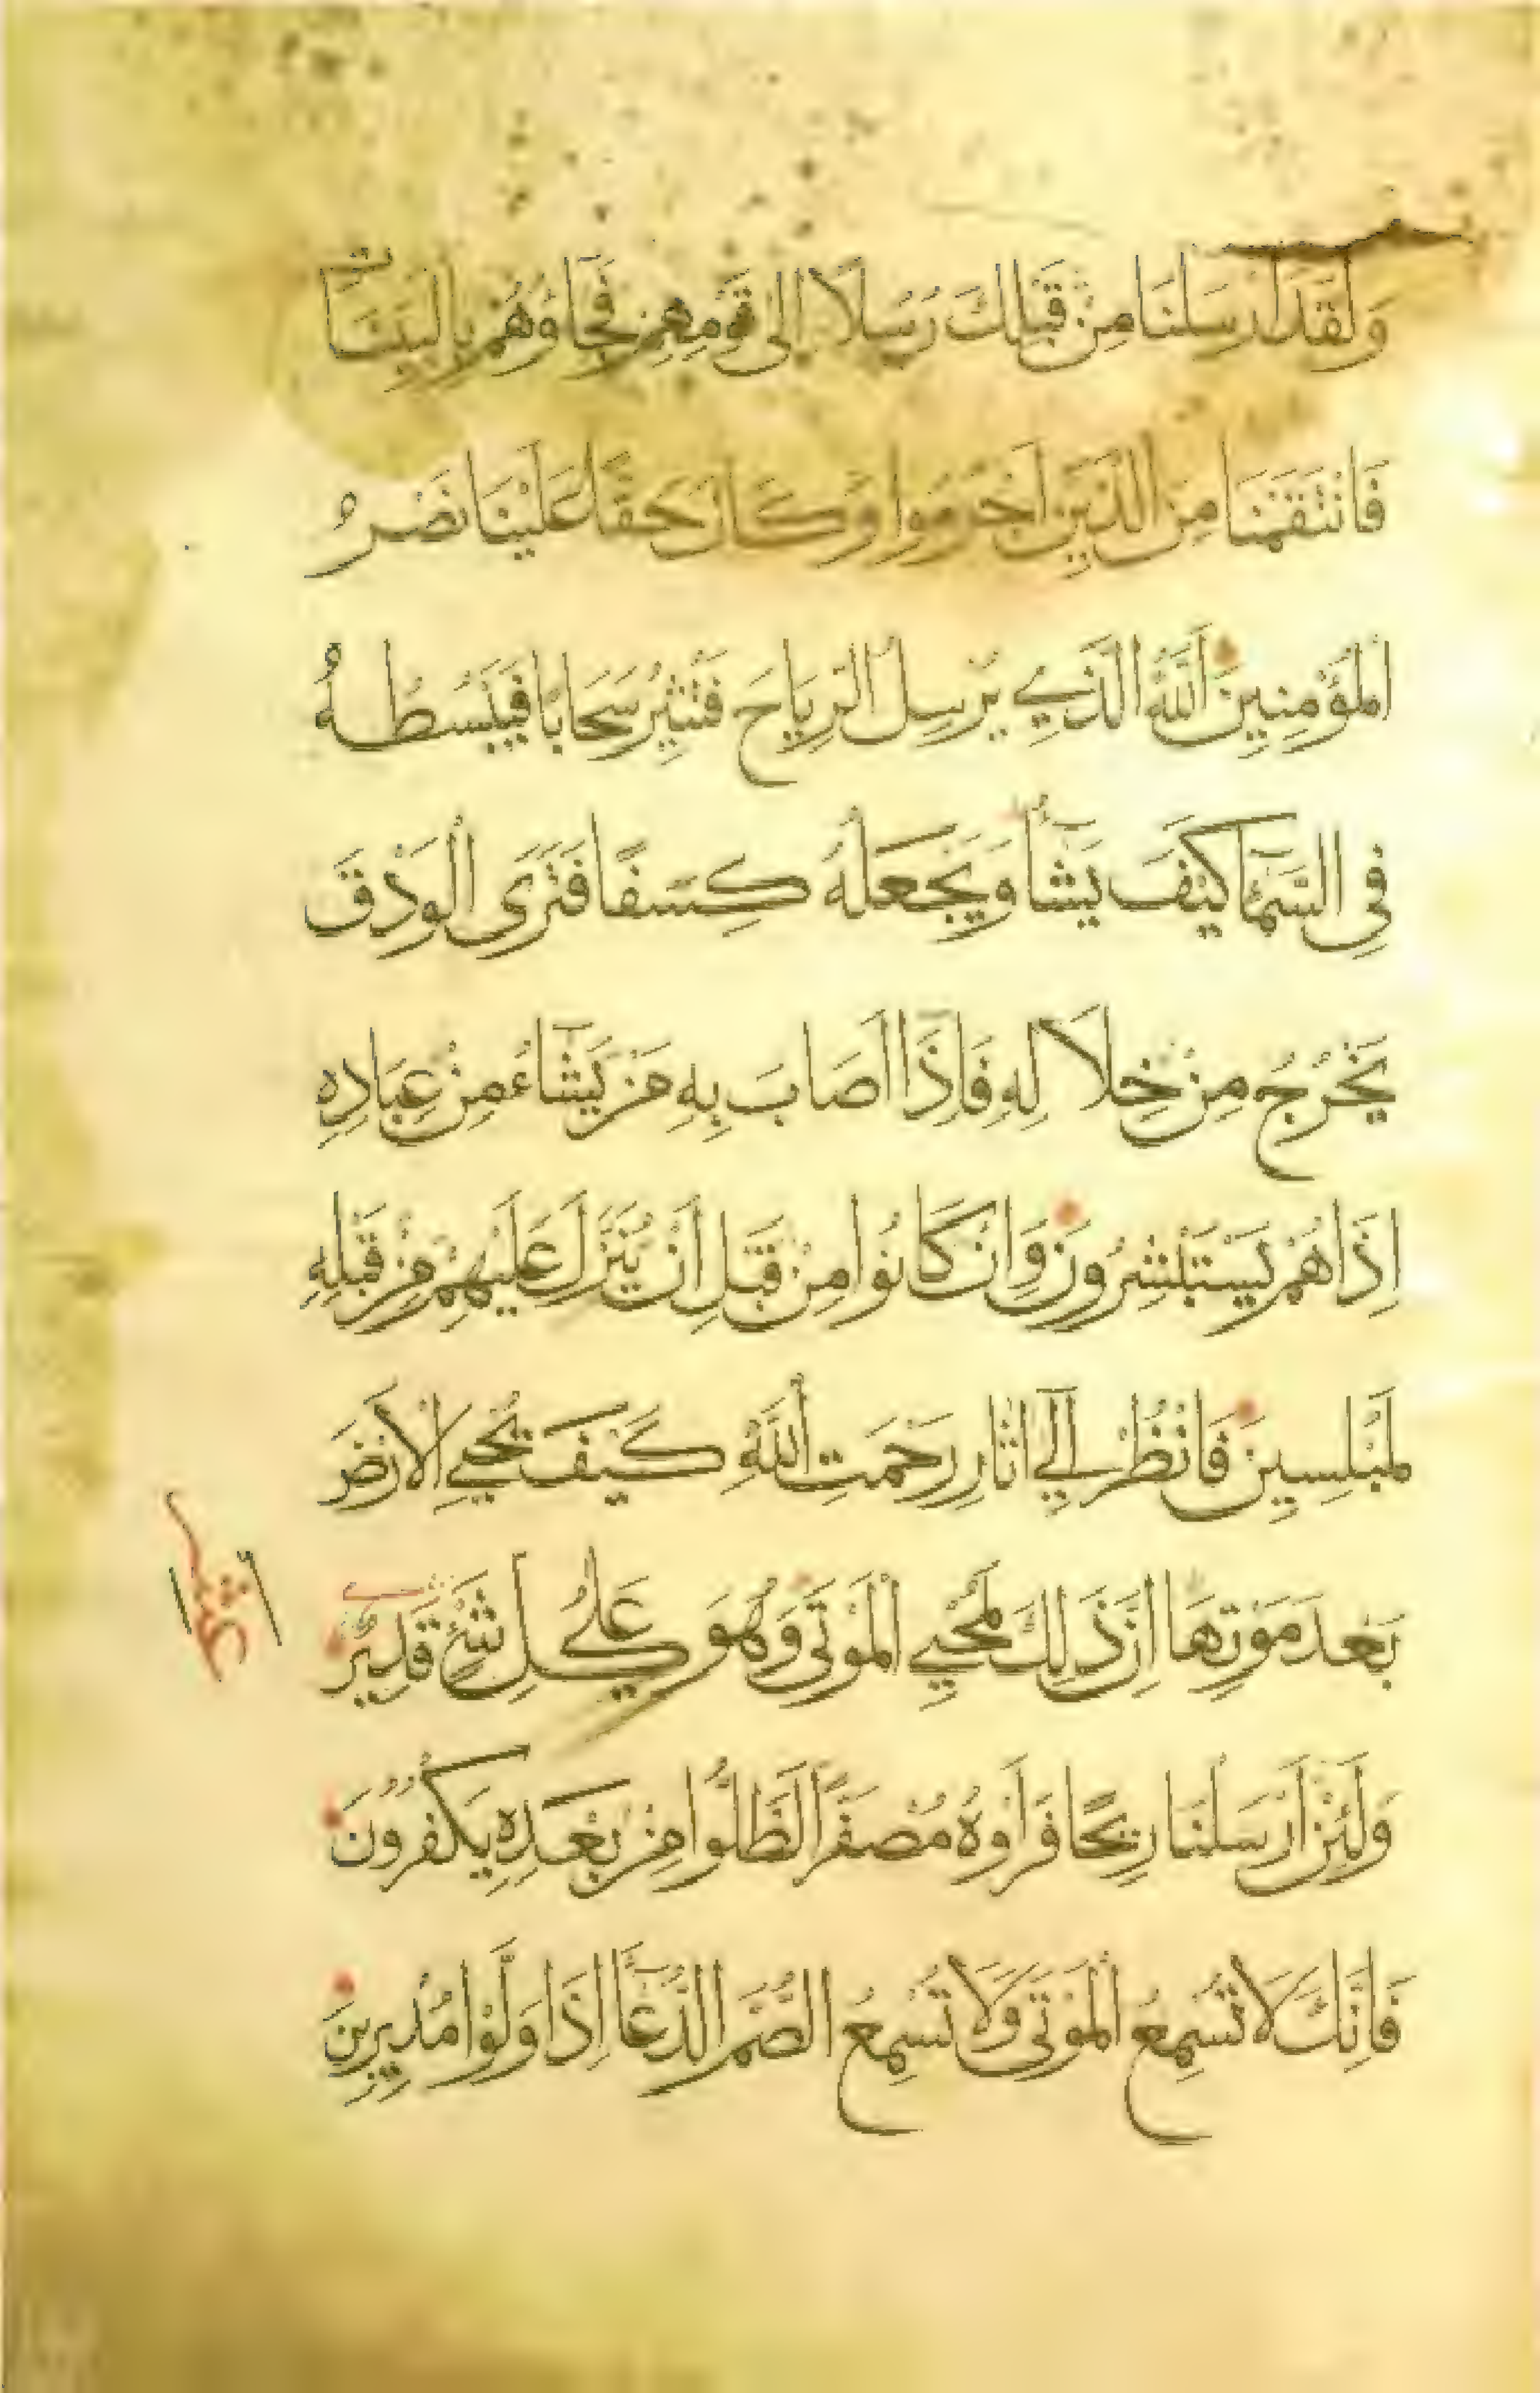 وَلَقَدْ اَرْسَلْنَا مِنْ قَبْلِكَ رُسُلًا اِلٰى قَوْمِهِمْ فَجَاؤُهُمْ بِالْبَيِّنَاتِ
فَانْتَقَمْنَا مِنَ الَّذِيْنَ اَجْرَمُوا وَكَانَ حَقًّا عَلَيْنَا نَصْرُ
الْمُؤْمِنِيْنَ اَللّٰهُ الَّذِي يُرْسِلُ الرِّيَاحَ فَتُثِيْرُ سَحَابًا فَيَبْسُطُهُ
فِي السَّمَآءِ كَيْفَ يَشَآءُ وَيَجْعَلُهُ كِسَفًا فَتَرَى الْوَدْقَ
يَخْرُجُ مِنْ خِلَالِهِ فَاِذَا اَصَابَ بِهِ مَنْ يَشَآءُ مِنْ عِبَادِهِ
اِذَا هُمْ يَسْتَبْشِرُوْنَ وَاِنْ كَانُوا مِنْ قَبْلِ اَنْ يُنَزَّلَ عَلَيْهِمْ مِنْ قَبْلِهِ
لَمُبْلِسِيْنَ فَانْظُرْ اِلٰي اٰثَارِ رَحْمَتِ اللّٰهِ كَيْفَ يُحْيِي الْاَرْضَ
بَعْدَ مَوْتِهَا اِنَّ ذٰلِكَ لَمُحْيِي الْمَوْتٰى وَهُوَ عَلٰي كُلِّ شَيْءٍ قَدِيْرٌ
وَلَئِنْ اَرْسَلْنَا رِيْحًا فَرَاَوْهُ مُصْفَرًّا لَظَلُّوا مِنْ بَعْدِهِ يَكْفُرُوْنَ
فَاِنَّكَ لَا تُسْمِعُ الْمَوْتٰى وَلَا تُسْمِعُ الصُّمَّ الدُّعَآءَ اِذَا وَلَّوْا مُدْبِرِيْنَ